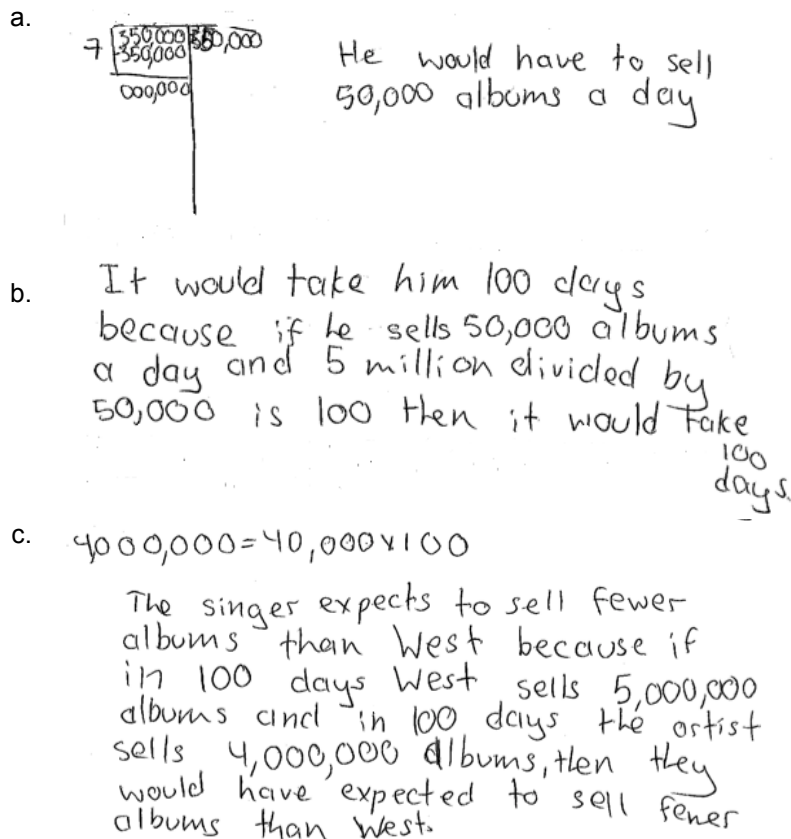 a.
7 350,000 50,000
-350,000
000,000
He would have to sell
50,000 albums a day
b.
It would take him 100 days
because if he sells 50,000 albums
a day and 5 million divided by
50,000 is 100 then it would take
100
days.
c.
4,000,000=40,000x100
The singer expects to sell fewer
albums than West because if
in 100 days West sells 5,000,000
albums and in 100 days the artist
sells 4,000,000 albums, then they
would have expected to sell fewer
albums than West.